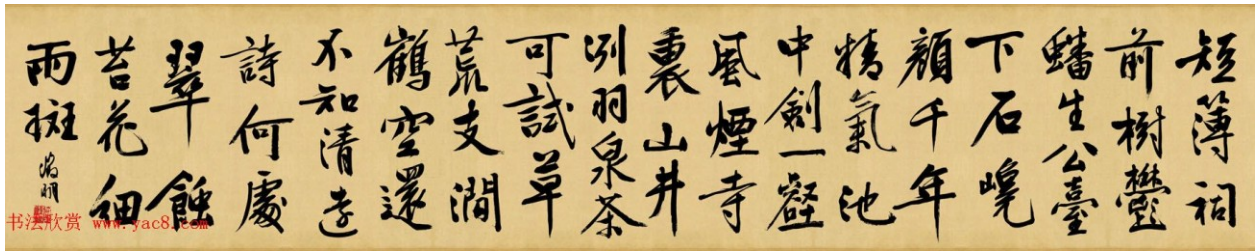 短簿祠
前樹鬱
蟠生公臺
下石巉
顏千年
精氣池
中劍一壑
風煙寺
裏山井
冽羽泉茶
可試草
荒支澗
鶴空還
不知清遠
詩何處
翠蝕
苔花細
雨斑
徵明
书法欣赏 www.yac8.com